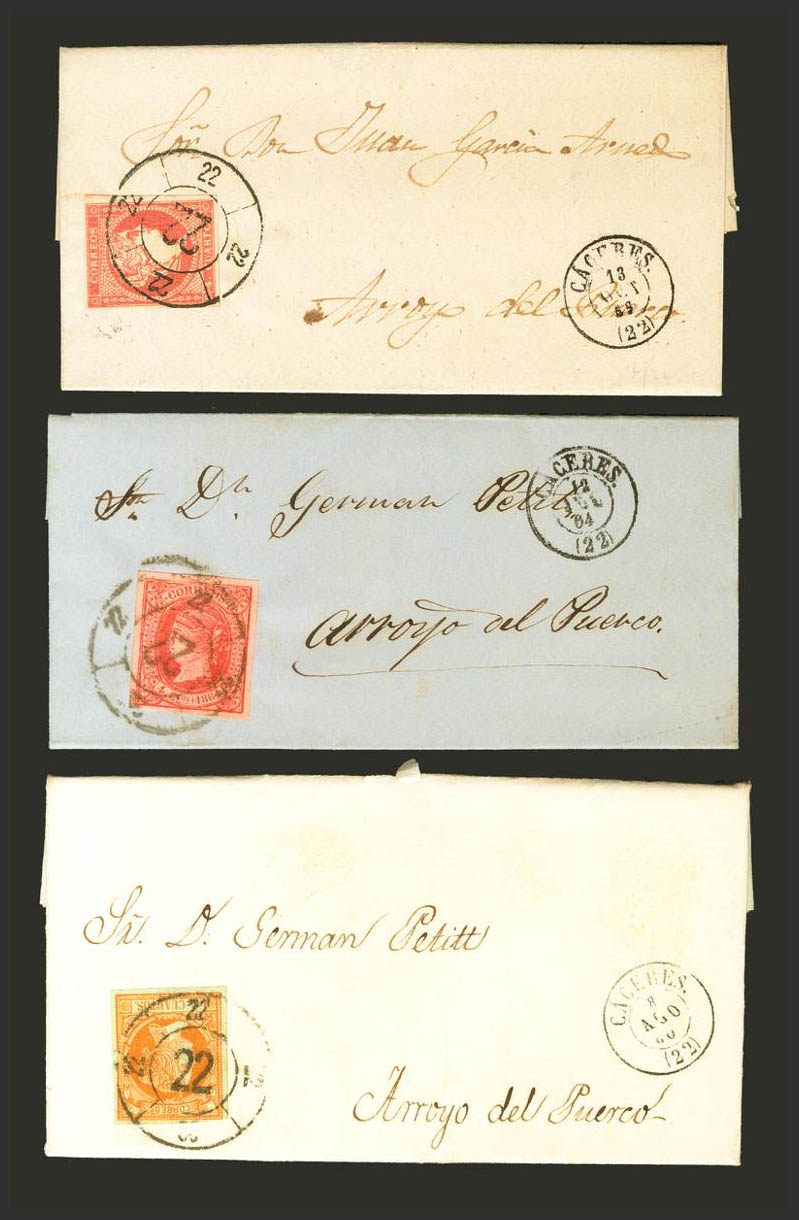 Sor Don Juan Garcia
22
22
22
22
22
CORREOS
CACERES.
13
OCT
(22)
Arroyo del Puerco.
Sr. Dn German Petit
CACERES.
12
64
(22)
22
CORREOS
arroyo del Puerco.
Sr. D. German Petitt
CACERES.
8
AGO
60
(22)
CUARTOS
22
22
22
CORREOS
Arroyo del Puerco